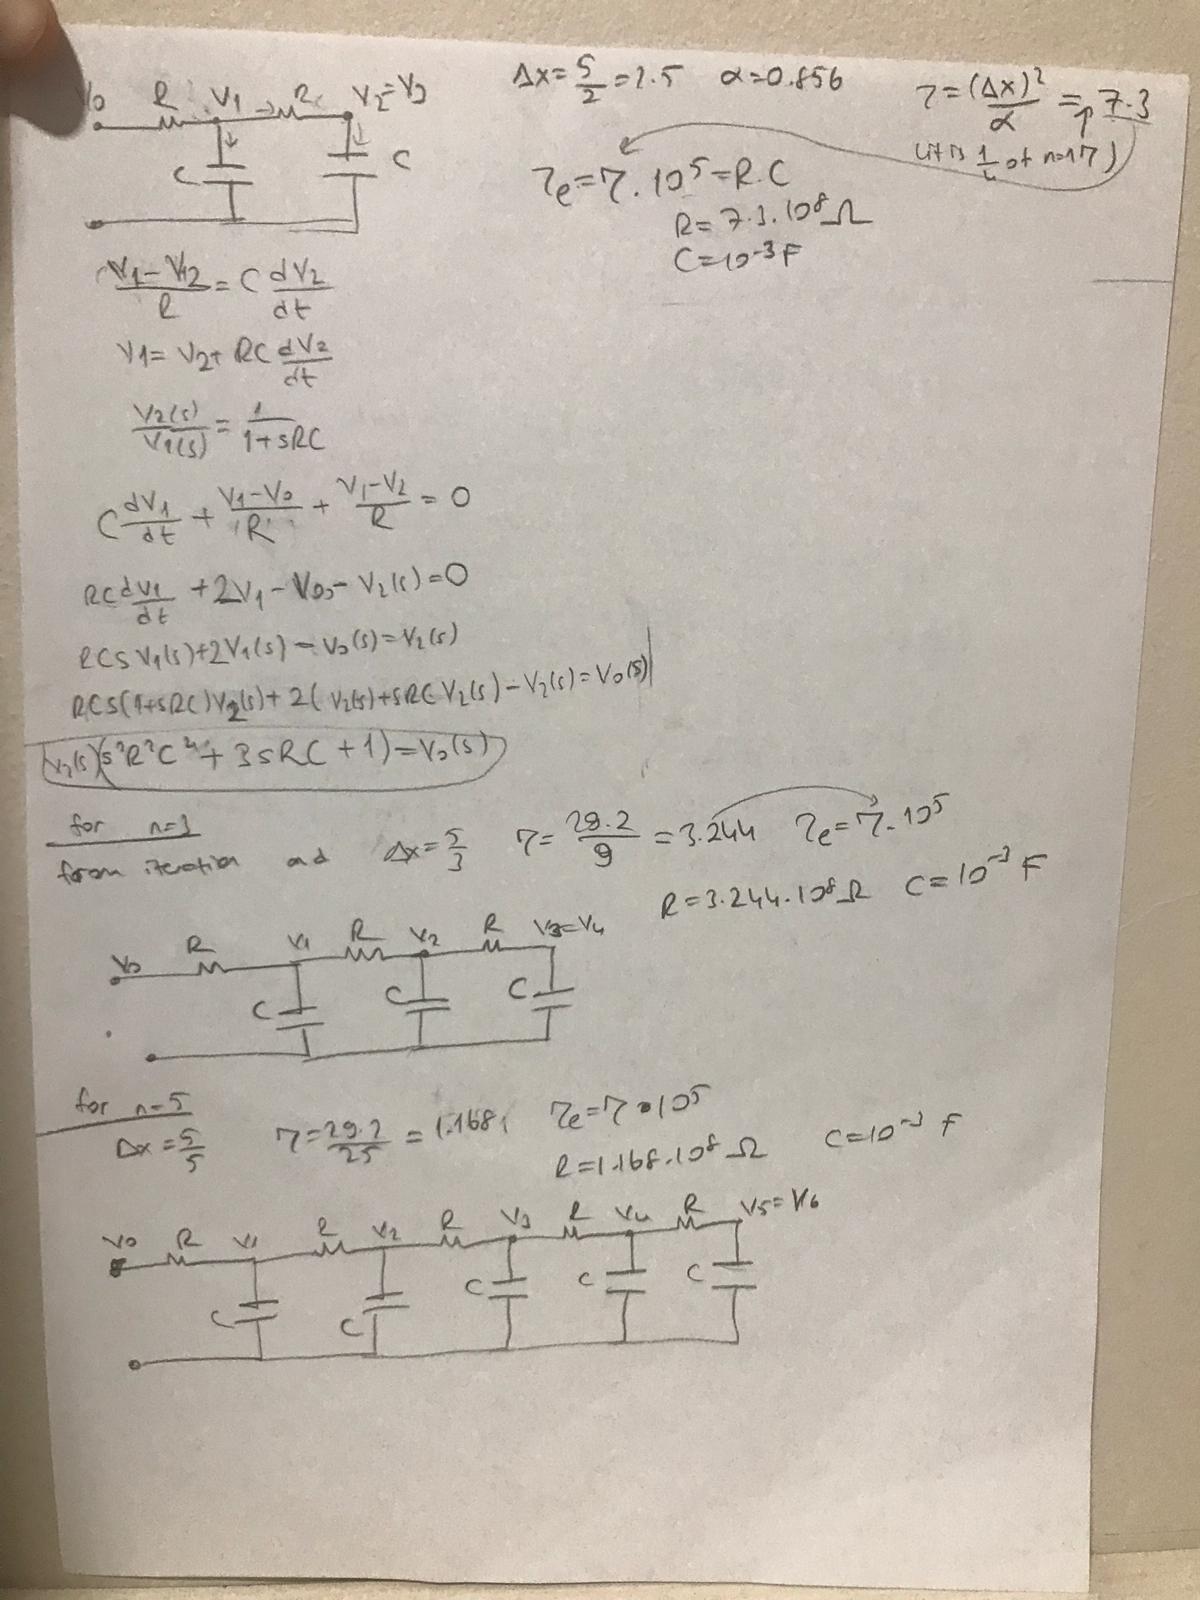 V0 R V1 R V2=V3
C C
Δx=5/2=2.5 α=0.856 τ=(Δx)²/α = 7.3
(it is 1/4 of n=1 τ)
τe=τ.10⁵=R.C
R=7.3.10⁸Ω
C=10⁻³F
(V1-V2)/R = C dV2/dt
V1= V2+ RC dV2/dt
V2(s)/V1(s) = 1/(1+sRC)
C dV1/dt + (V1-V0)/R + (V1-V2)/R = 0
RC dV1/dt +2V1-V0-V2(s)=0
RCSV1(s)+2V1(s)-V0(s)=V2(s)
RCS(1+sRC)V2(s)+2(V2(s)+sRCV2(s)-V2(s)=V0(s)
V2(s)(s²R²C²+3sRC+1)=V0(s)
for n=3
from iteration and Δx=5/3 τ=29.2/9=3.244 τe=τ.10⁵
R=3.244.10⁸Ω C=10⁻³F
V0 R V1 R V2 R V3=V4
C C C
for n=5
Δx=5/5 τ=29.2/25=1.168 τe=τ.10⁵
R=1.168.10⁸Ω C=10⁻³F
V0 R V1 R V2 R V3 R V4 R V5=V6
C C C C C